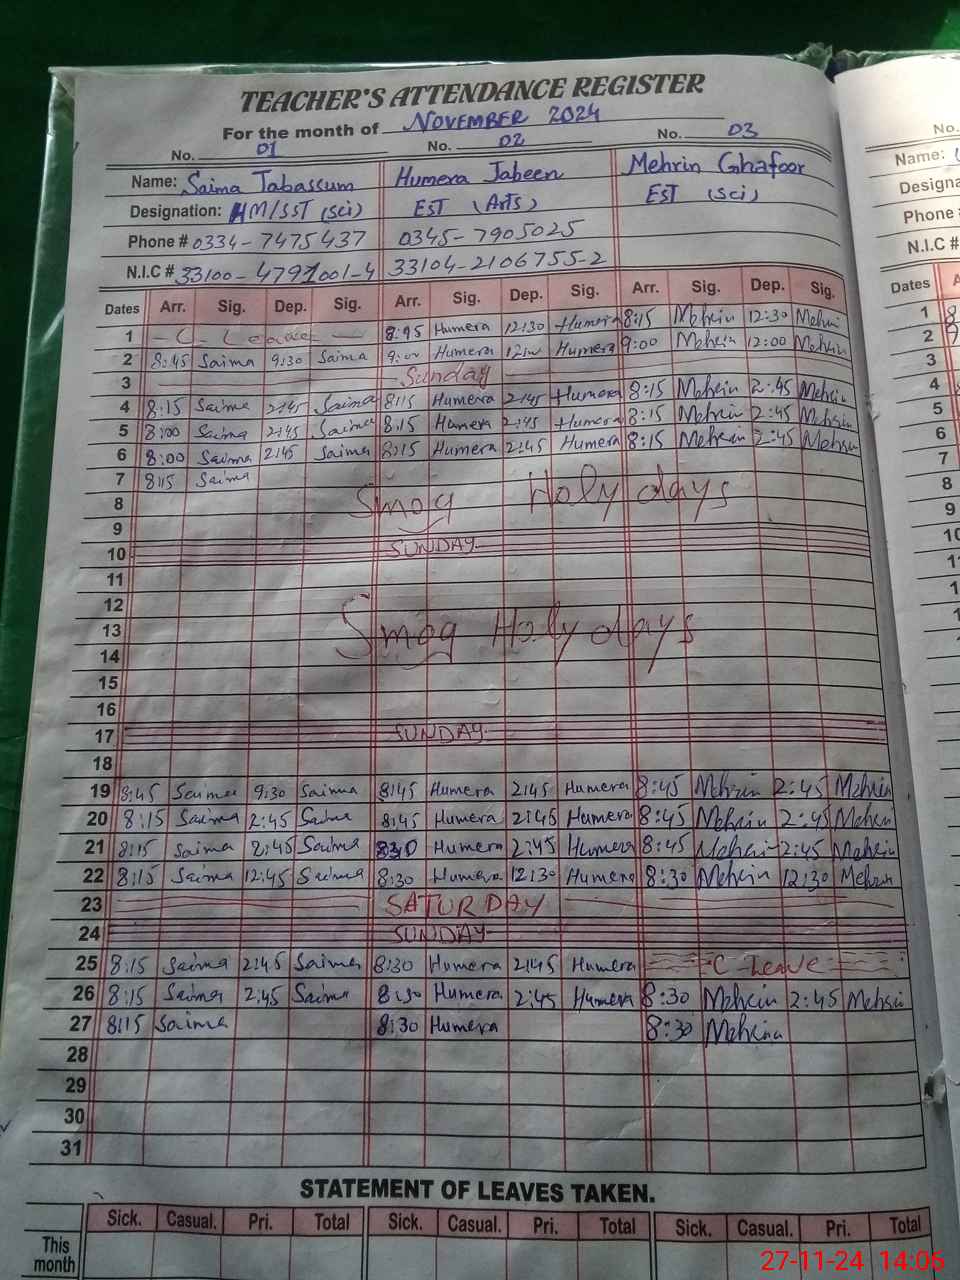 TEACHER'S ATTENDANCE REGISTER
For the month of NOVEMBER 2024
No. 01 No. 02 No. 03 No.
Name: Saima Tabassum Humera Jabeen Mehrin Ghafoor Name:
Designation: HM/SST (sci) EST (Arts) EST (sci)
Phone # 0334-7475437 0345-7905025 Phone #
N.I.C # 33100-4791001-4 33104-2106755-2 N.I.C #
Dates Arr. Sig. Dep. Sig. Arr. Sig. Dep. Sig. Arr. Sig. Dep. Sig. Dates
1 C. Leave Humera 12:30 Humera 8:15 Mehrin 12:30 Mehrin 1
2 8:45 Saima 9:30 Saima 9:00 Humera Humera 9:00 Mehrin 12:00 Mehrin 2
3 Sunday 3
4 8:15 Saima 2:45 Saima 8:15 Humera 2:45 Humera 8:15 Mehrin 2:45 Mehrin 4
5 8:00 Saima 2:45 Saima 8:15 Humera 2:45 Humera 8:15 Mehrin 2:45 Mehrin 5
6 8:00 Saima 2:45 Saima 8:15 Humera 2:45 Humera 8:15 Mehrin 2:45 Mehrin 6
7 8:15 Saima 7
8 Smog Holy days 8
9 9
10 SUNDAY 10
11
12
13 Smog Holy days
14
15
16
17 SUNDAY
18
19 8:45 Saima 9:30 Saima 8:45 Humera 2:45 Humera 8:45 Mehrin 2:45 Mehrin
20 8:15 Saima 2:45 Saima 8:45 Humera 2:45 Humera 8:45 Mehrin 2:45 Mehrin
21 8:15 Saima 2:45 Saima 830 Humera 2:45 Humera 8:45 Mehrin 2:45 Mehrin
22 8:15 Saima 12:45 Saima 8:30 Humera 12:30 Humera 8:30 Mehrin 12:30 Mehrin
23 SATURDAY
24 SUNDAY
25 8:15 Saima 2:45 Saima 8:30 Humera 2:45 Humera C-Leave
26 8:15 Saima 2:45 Saima 8:30 Humera 2:45 Humera 8:30 Mehrin 2:45 Mehrin
27 8:15 Saima 8:30 Humera 8:30 Mehrin
28
29
30
31
STATEMENT OF LEAVES TAKEN.
Sick. Casual. Pri. Total Sick. Casual. Pri. Total Sick. Casual. Pri. Total
This month
27-11-24 14:06